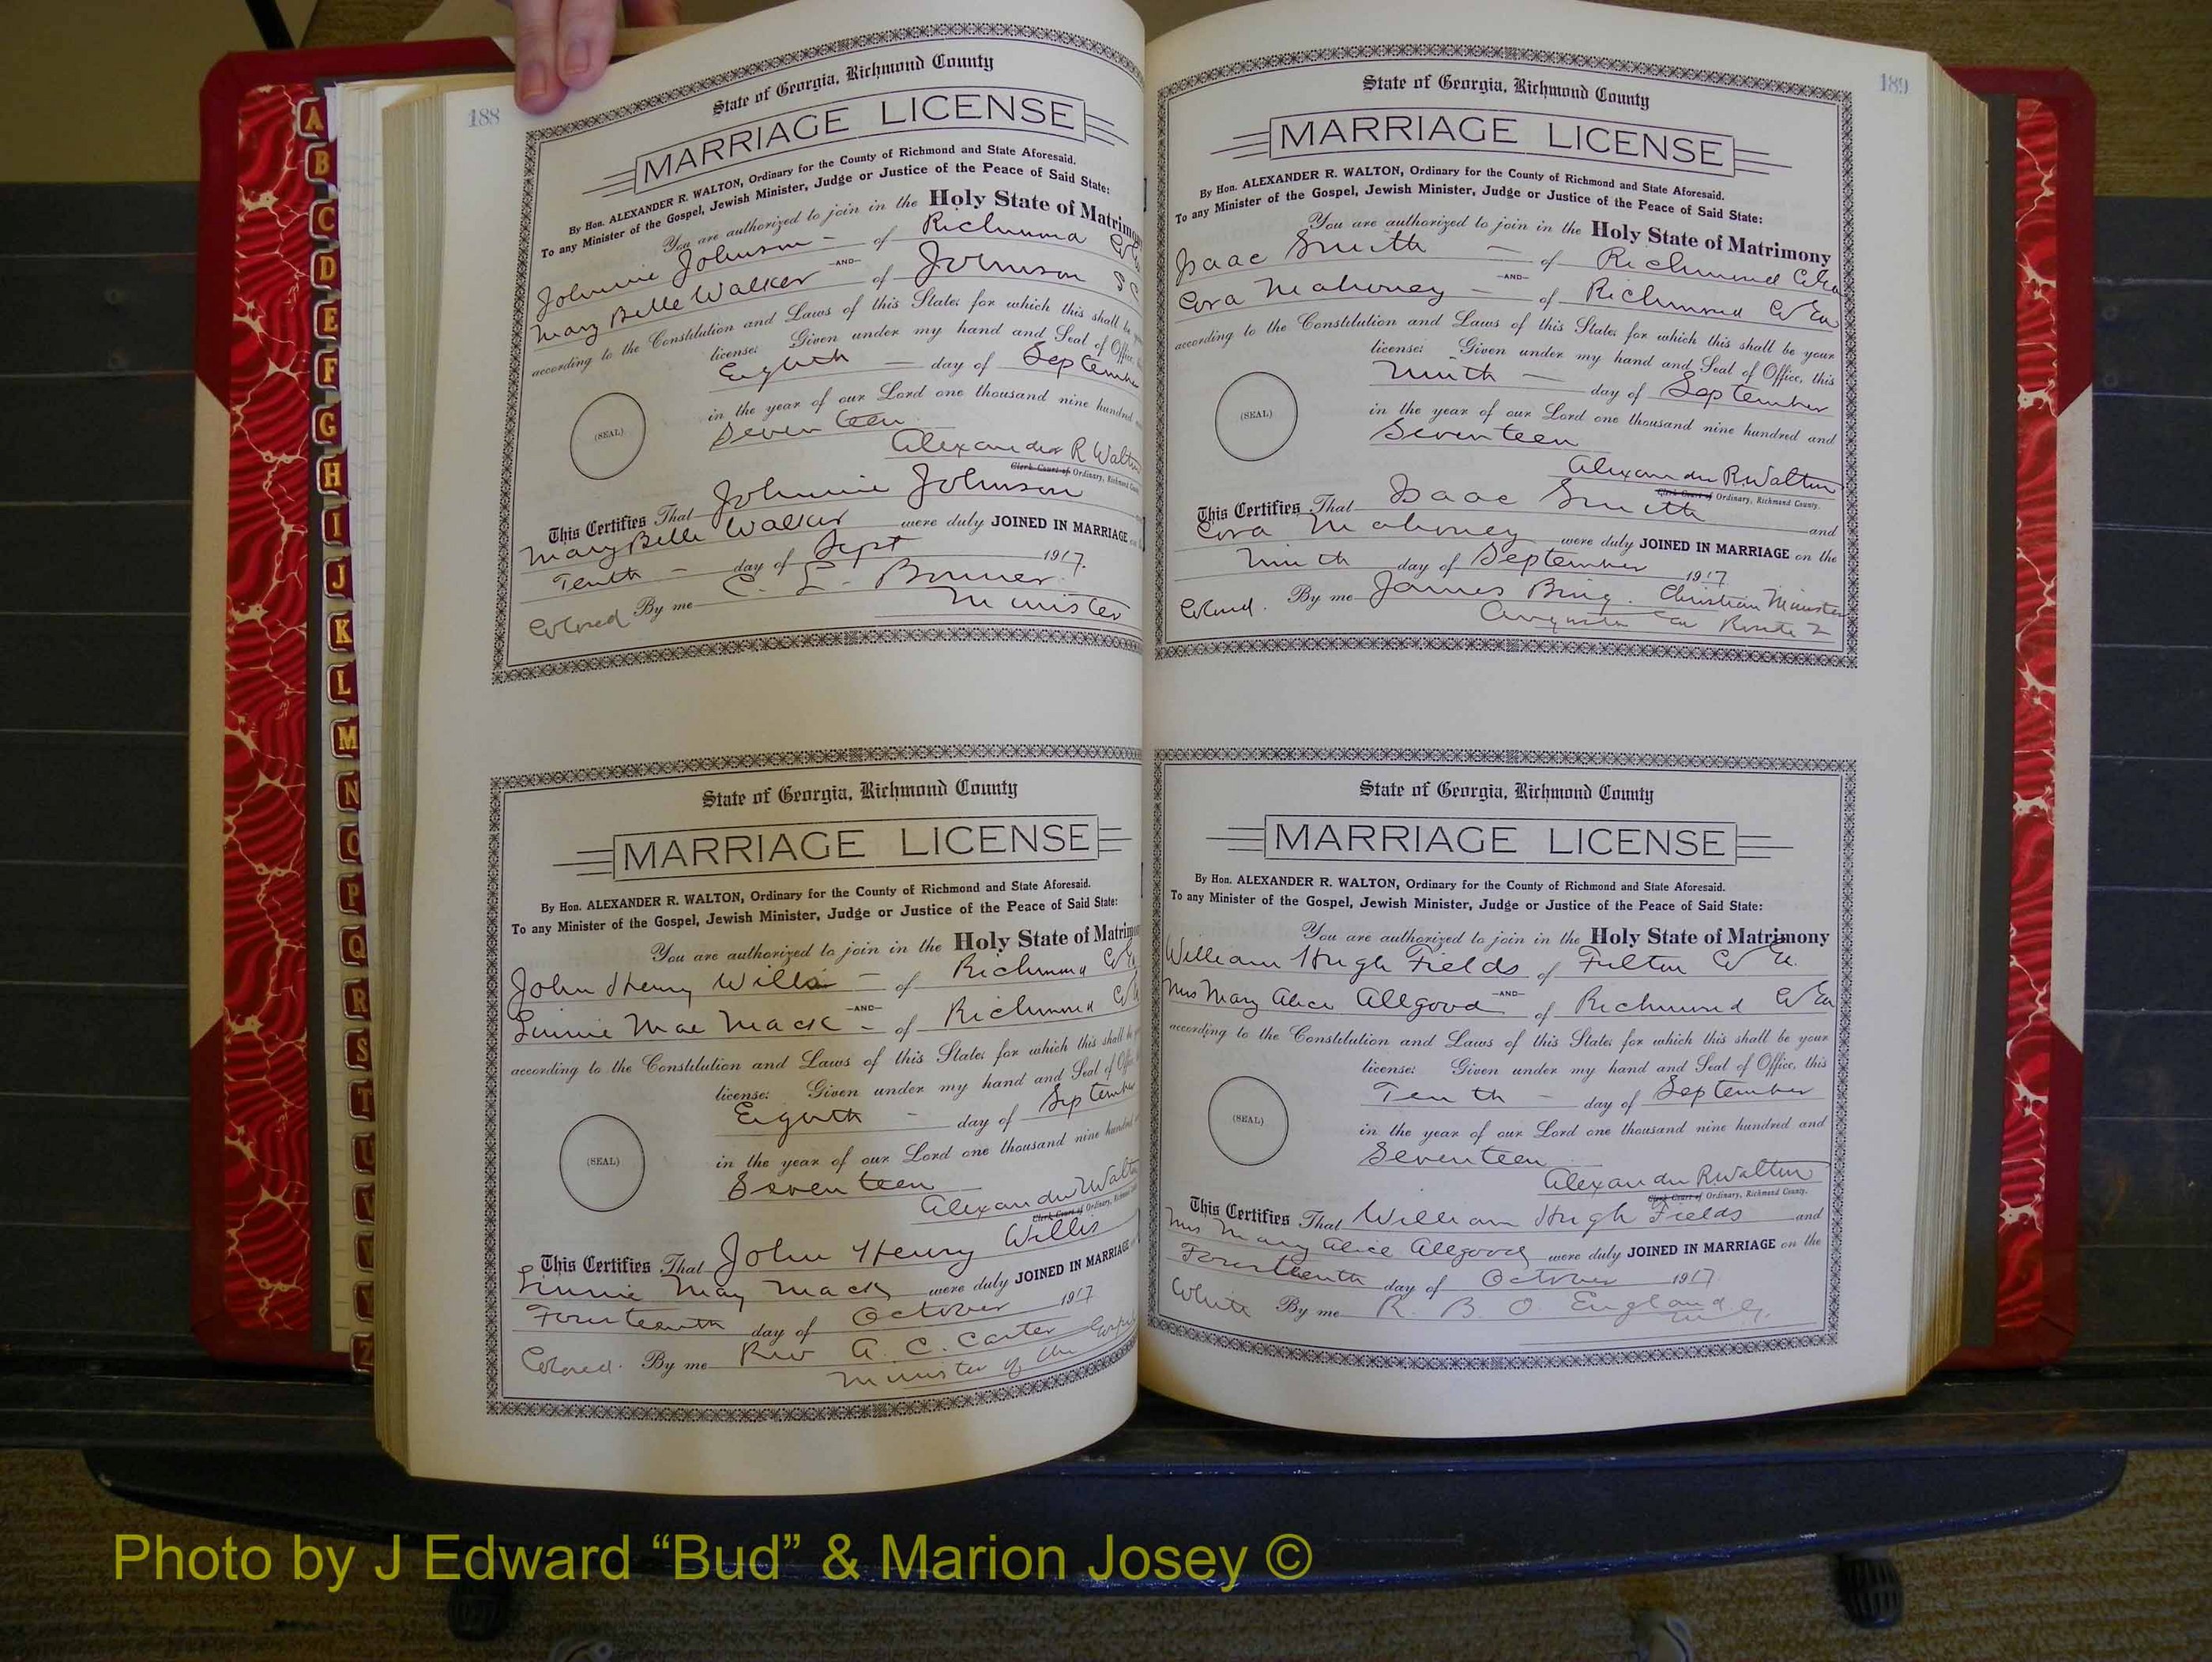 188
State of Georgia, Richmond County
MARRIAGE LICENSE
By Hon. ALEXANDER R. WALTON, Ordinary for the County of Richmond and State Aforesaid.
To any Minister of the Gospel, Jewish Minister, Judge or Justice of the Peace of Said State:
You are authorized to join in the Holy State of Matrimo
Johnnie Johnson - of Richmond Co
—AND—
Mary Belle Walker of Johnson S C
according to the Constitution and Laws of this State: for which this shall be
license: Given under my hand and Seal of Office,
Eighth — day of September
in the year of our Lord one thousand nine hundred
Seventeen
Alexander R Walton
Clerk Court of Ordinary, Richmond
(SEAL)
This Certifies That Johnnie Johnson
Mary Belle Walker were duly JOINED IN MARRIAGE
Tenth - day of Sept 1917.
Colored By me C. L. Bonner
Minister
State of Georgia, Richmond County
MARRIAGE LICENSE
By Hon. ALEXANDER R. WALTON, Ordinary for the County of Richmond and State Aforesaid.
To any Minister of the Gospel, Jewish Minister, Judge or Justice of the Peace of Said State:
You are authorized to join in the Holy State of Matrimo
John Henry Willis - of Richmond Co
—AND—
Linnie Mae Mack - of Richmond Co
according to the Constitution and Laws of this State: for which this shall be
license: Given under my hand and Seal of
Eighth - day of September
in the year of our Lord one thousand nine hundred
Seventeen
Alexander R Walton
Clerk Court of Ordinary, Richmond
(SEAL)
This Certifies That John Henry Willis
Linnie May Mack were duly JOINED IN MARRIAGE
Fourteenth day of October 1917
Colored. By me Rev A. C. Carter
Minister of the Gospel
189
State of Georgia, Richmond County
MARRIAGE LICENSE
By Hon. ALEXANDER R. WALTON, Ordinary for the County of Richmond and State Aforesaid.
To any Minister of the Gospel, Jewish Minister, Judge or Justice of the Peace of Said State:
You are authorized to join in the Holy State of Matrimony
Isaac Smith — of Richmond Co Ga
—AND—
Cora Mahoney — of Richmond Co Ga
according to the Constitution and Laws of this State: for which this shall be your
license: Given under my hand and Seal of Office, this
Ninth — day of September
in the year of our Lord one thousand nine hundred and
Seventeen
Alexander R Walton
Clerk Court of Ordinary, Richmond County.
(SEAL)
This Certifies That Isaac Smith and
Cora Mahoney were duly JOINED IN MARRIAGE on the
Ninth day of September 1917
Colored. By me James Bing. Christian Minister
Augusta Ga Route 2
State of Georgia, Richmond County
MARRIAGE LICENSE
By Hon. ALEXANDER R. WALTON, Ordinary for the County of Richmond and State Aforesaid.
To any Minister of the Gospel, Jewish Minister, Judge or Justice of the Peace of Said State:
You are authorized to join in the Holy State of Matrimony
William Hugh Fields of Fulton Co Ga.
—AND—
Mrs Mary Alice Allgood of Richmond Co Ga
according to the Constitution and Laws of this State: for which this shall be your
license: Given under my hand and Seal of Office, this
Tenth - day of September
in the year of our Lord one thousand nine hundred and
Seventeen
Alexander R Walton
Clerk Court of Ordinary, Richmond County.
(SEAL)
This Certifies That William Hugh Fields and
Mrs Mary Alice Allgood were duly JOINED IN MARRIAGE on the
Fourteenth day of October 1917
White By me R. B. O. England
M. G.
A
B
C
D
E
F
G
H
I
J
K
L
M
N
O
P
Q
R
S
T
U
V
Z
Photo by J Edward “Bud” & Marion Josey ©